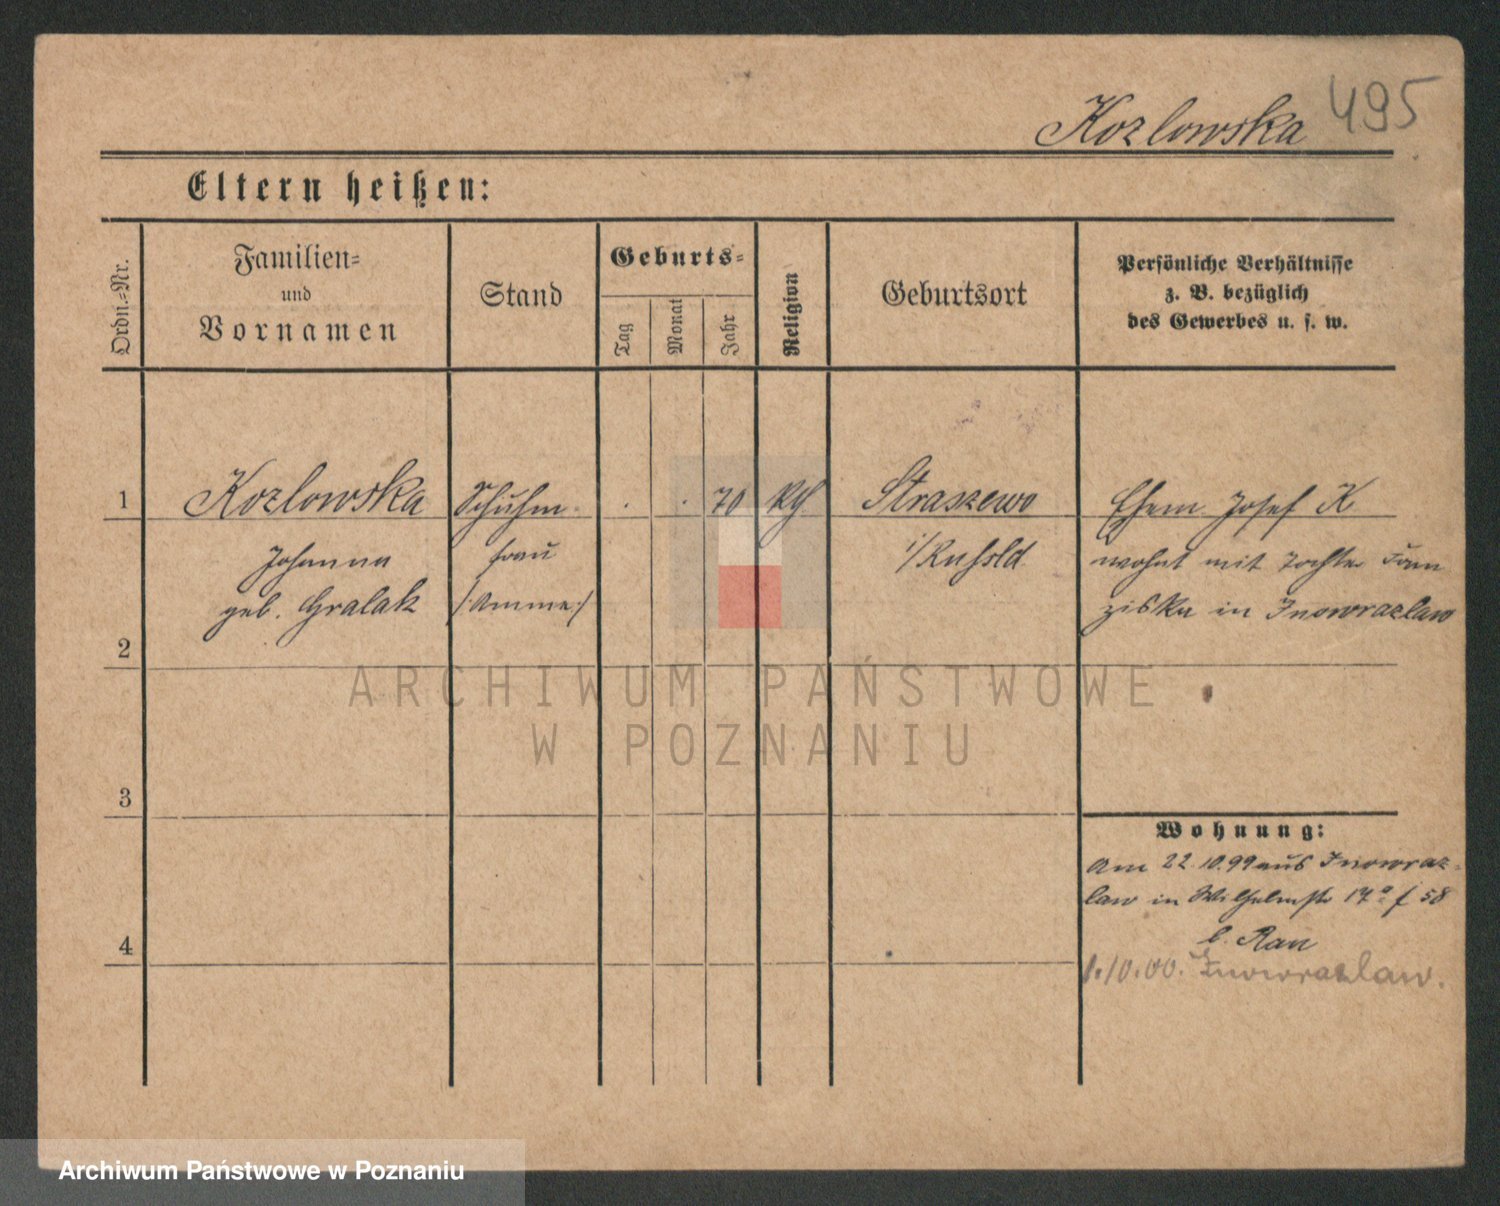 Kozlowska 495
Eltern heißen:
Ordn.-Nr.
Familien-
und
Vornamen
Stand
Geburts-
Tag
Monat
Jahr
Religion
Geburtsort
Persönliche Verhältnisse
z. B. bezüglich
des Gewerbes u. s. w.
1 Kozlowska Schuhm. . . 70 kth Straszewo Ehem. Josef K
Johanna frau i/Rußld. wohnt mit Tochter Fran
geb. Gralak /:Amme:/ ziska in Inowrazlaw
2
ARCHIWUM PAŃSTWOWE
W POZNANIU
3
Wohnung:
Am 22.10.99 aus Inowraz-
law in Wilhelmstr 17a f 58
b. Rau
4
1.10.00. Inowrazlaw.
Archiwum Państwowe w Poznaniu